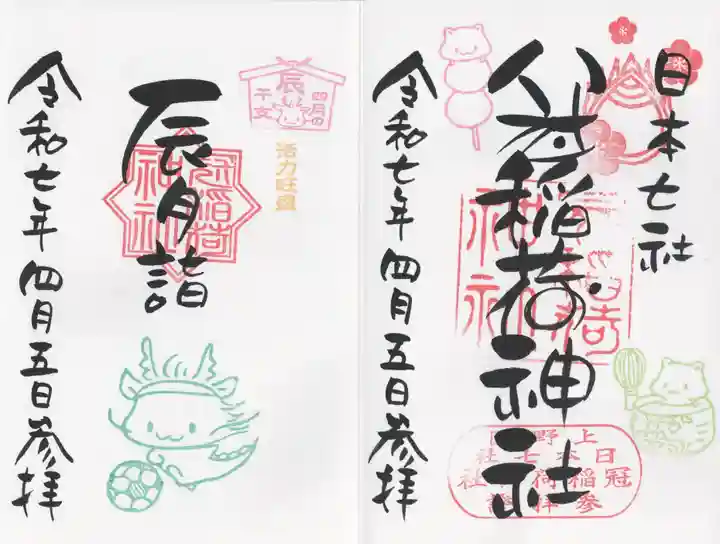 日本七社
冠稲荷神社
令和七年四月五日参拝
上野
日本七社
冠稲荷神社
参拝
四月の
辰
干支
活力旺盛
辰月詣
冠稲荷神社
令和七年四月五日参拝